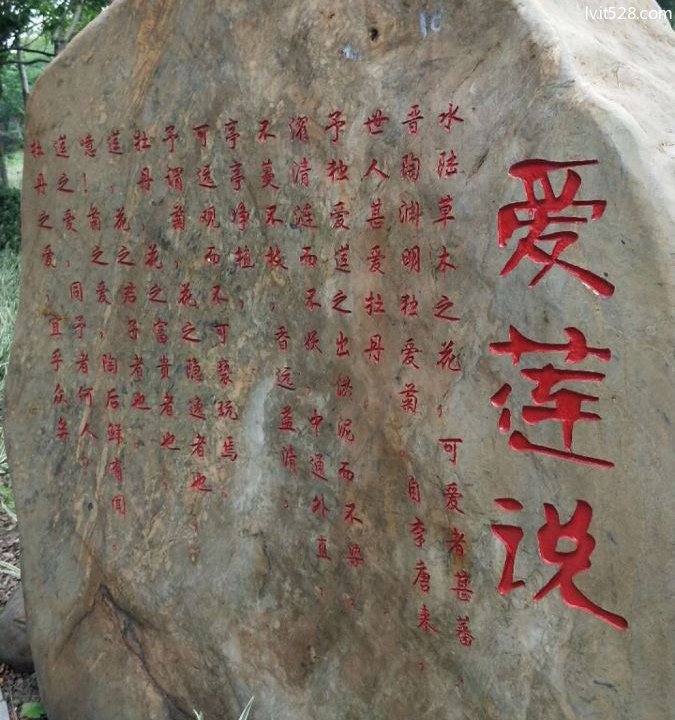 lvit528.com
爱莲说
水陆草木之花,可爱者甚蕃.
晋陶渊明独爱菊.自李唐来.
世人甚爱牡丹
予独爱莲之出淤泥而不染.
濯清涟而不妖,中通外直.
不蔓不枝,香远益清.
亭亭净植,
可远观而不可亵玩焉.
予谓菊,花之隐逸者也.
牡丹,花之富貴者也.
莲,花之君子者也.
噫!菊之爱,陶后鲜有闻.
莲之爱,同予者何人.
牡丹之爱,宜乎众矣